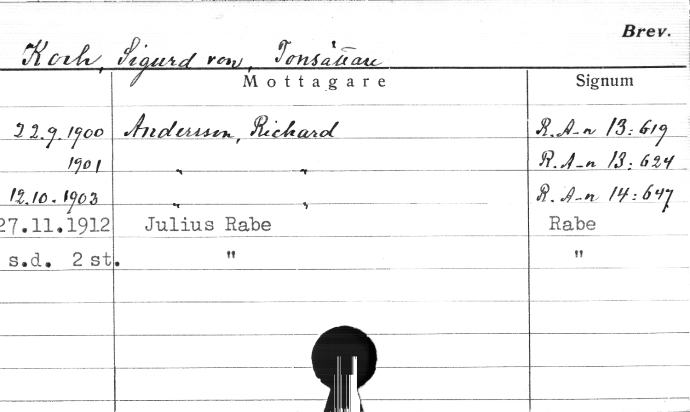 Brev.
Koch, Sigurd von, Tonsättare
Mottagare Signum
22.9.1900 Andersson, Richard R. A-n 13:619
1901 " " R. A-n 13:624
12.10.1903 " " R. A-n 14:647
27.11.1912 Julius Rabe Rabe
s.d. 2 st. " "